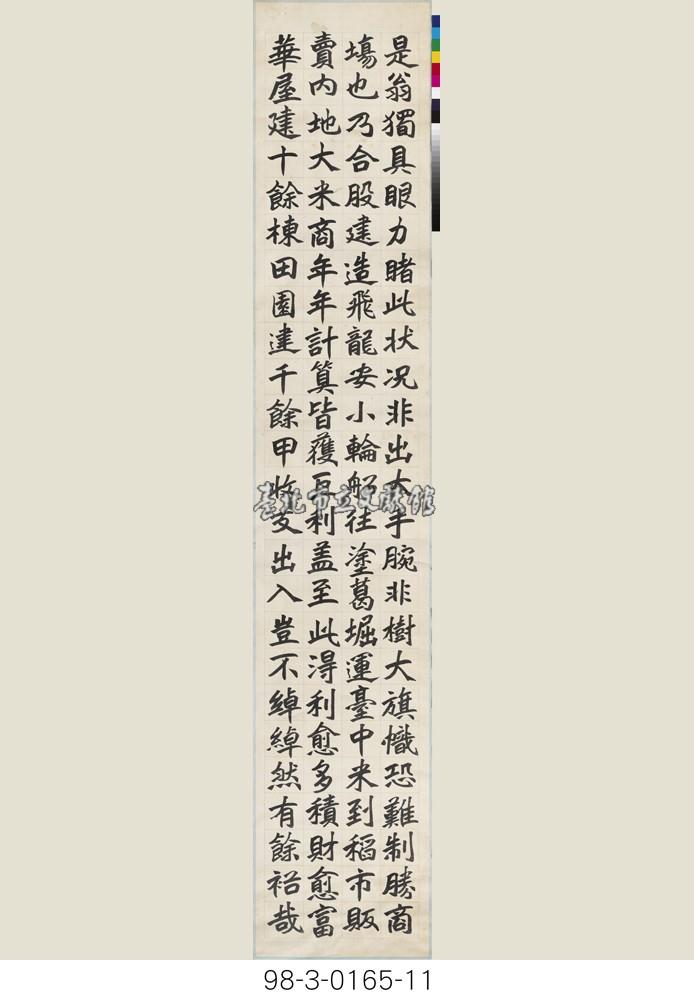 是翁獨具眼力睹此状况非出大手腕非樹大旗幟恐難制勝商
塲也乃合股建造飛龍安小輪船往塗葛堀運臺中米到稻市販
賣内地大米商年年計算皆獲巨利盖至此得利愈多積財愈富
華屋建十餘棟田園達千餘甲收支出入豈不綽綽然有餘裕哉
臺北市立文獻館
98-3-0165-11